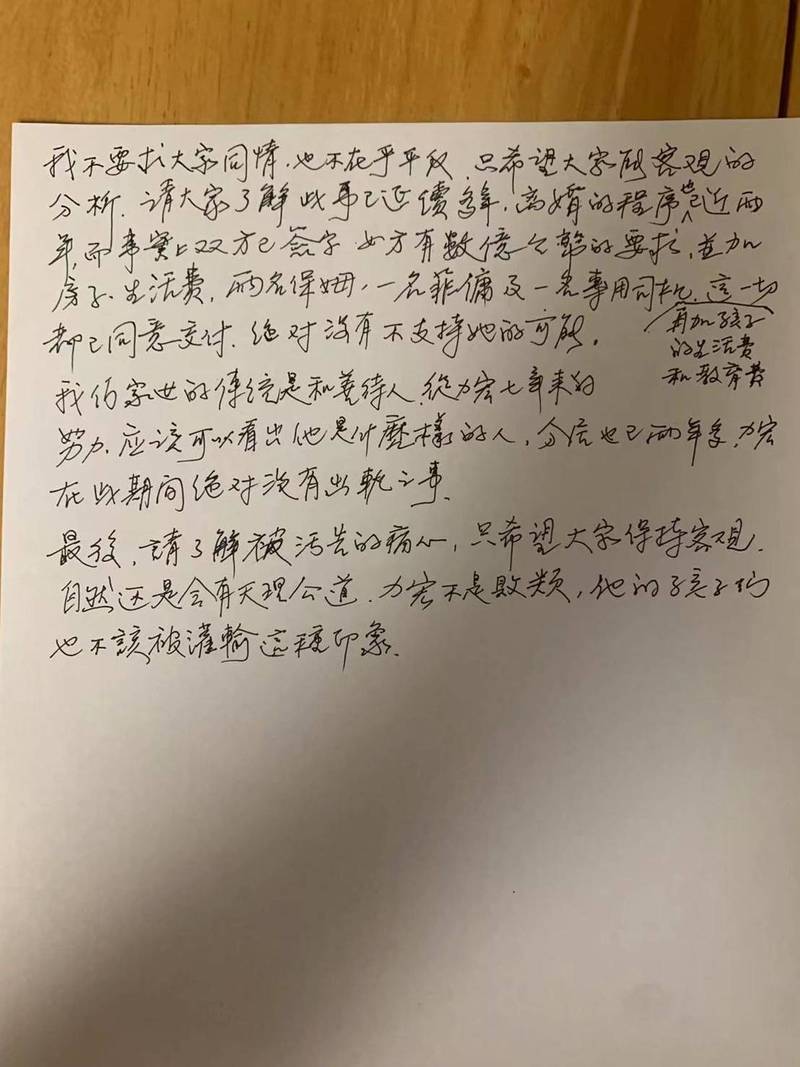 我不要求大家同情.也不在乎平反.只希望大家能客观的
分析.請大家了解此事已延續多年.离婚的程序也已近两
年,而事實上双方已簽字 女方有數億台幣的要求,並加
房子.生活費,两名保姆,一名菲傭及一名專用司机.這一切
都已同意交付.绝对没有不支持她的可能.
再加孩子
的生活費
和教育費
我们家世的傳統是和善待人.從力宏年来的
努力.应该可以看出他是什麼樣的人,分居也已两年多,力宏
在此期间绝对没有出軌之事.
最後,請了解被污告的痛心,只希望大家保持客观.
自然还是会有天理公道.力宏不是敗類,他的孩子们
也不該被灌輸這種印象.